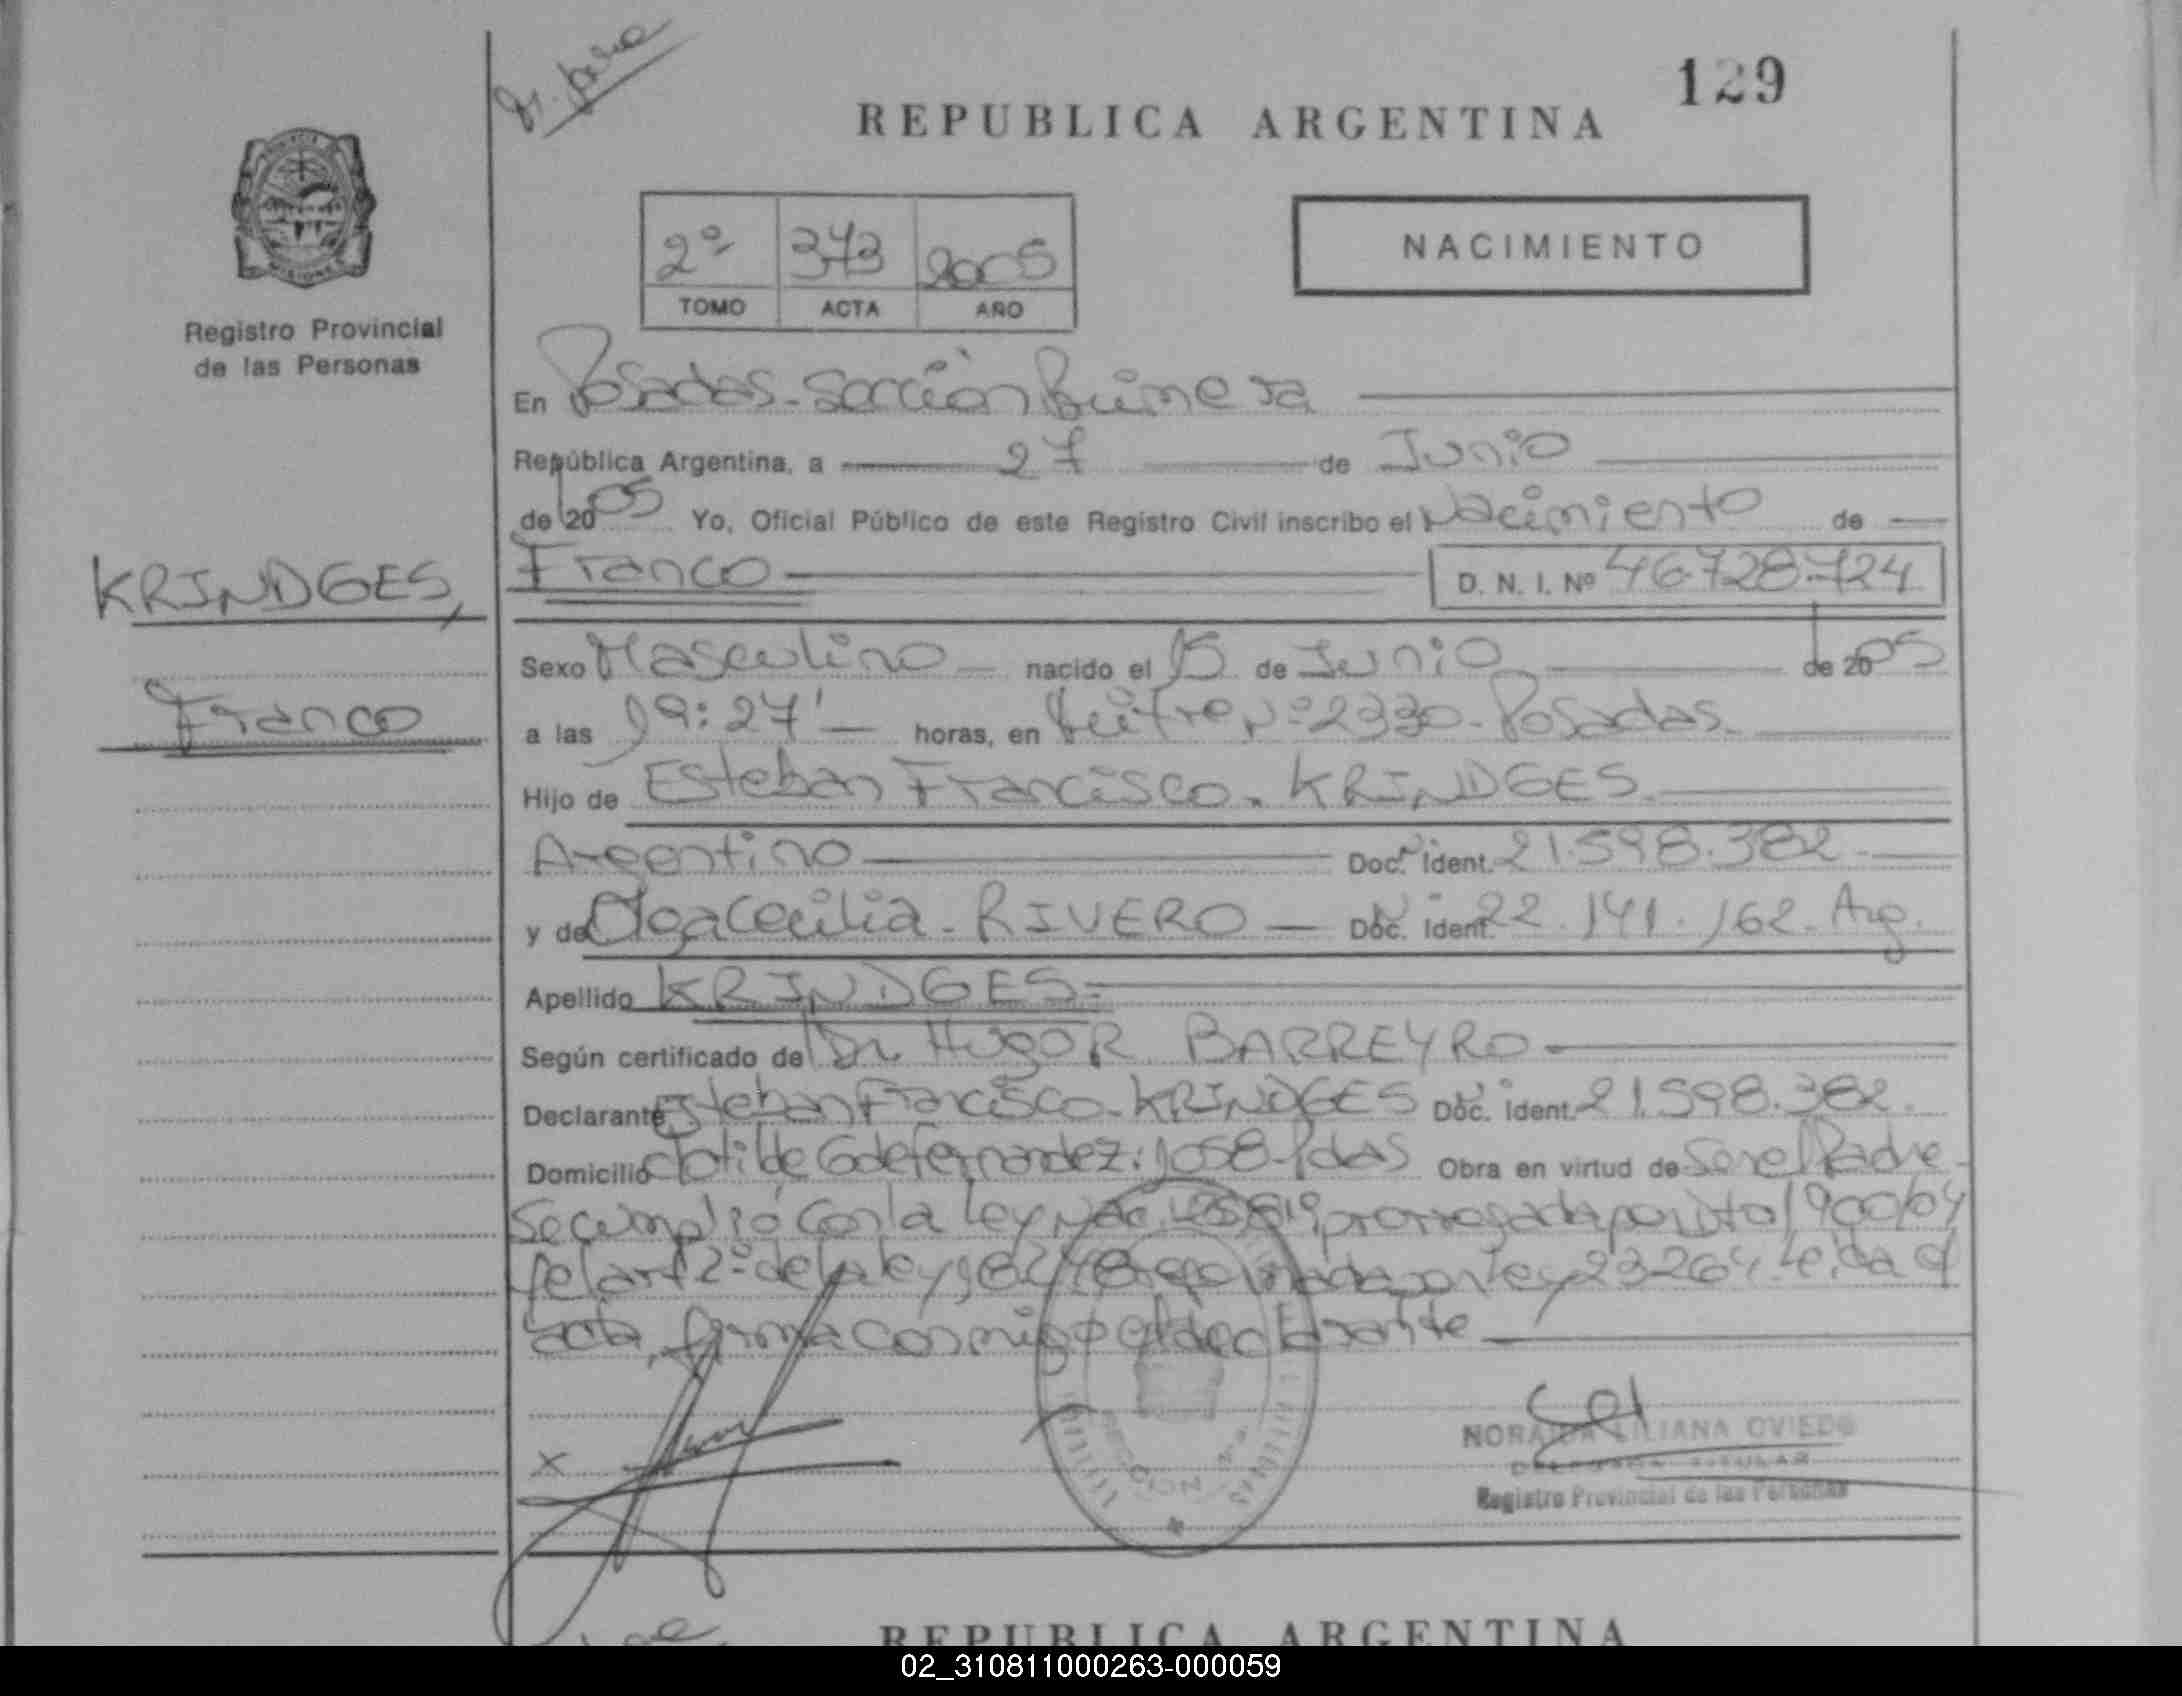 129
REPUBLICA ARGENTINA
PROVINCIA
MISIONES
Registro Provincial
de las Personas
2º 373 2005
TOMO ACTA AÑO
NACIMIENTO
En Posadas-Sección Primera
República Argentina, a 27 de Junio
de 2005 Yo, Oficial Público de este Registro Civil inscribo el Nacimiento de
KRINDGES,
Franco
Franco D. N. I. Nº 46.728.724
Sexo Masculino nacido el 15 de Junio de 2005
a las 19:27' horas, en Nº 2330-Posadas.
Hijo de Esteban Francisco. KRINDGES.
Argentino Doc. Ident. 21.598.382
y de Olga Cecilia - RIVERO Doc. Ident. 22.141.162-Arg.
Apellido KRINDGES
Según certificado de Dr. Hugo R BARREYRO
Declarante Esteban Francisco-KRINDGES Doc. Ident. 21.598.382.
Domicilio Clotilde G de Fernandez: 1058-Pdas Obra en virtud de Ser el Padre-
Se cumplió con la Ley Nac. prorrogada por Dto 1900/04
el art 2º de la ley 18248 por ley 23264. Leida el
acta, firma conmigo el declarante
X
SECCION 1ra.
NORAIDA LILIANA OVIEDO
DELEGADA TITULAR
Registro Provincial de las Personas
REPUBLICA ARGENTINA
02_310811000263-000059